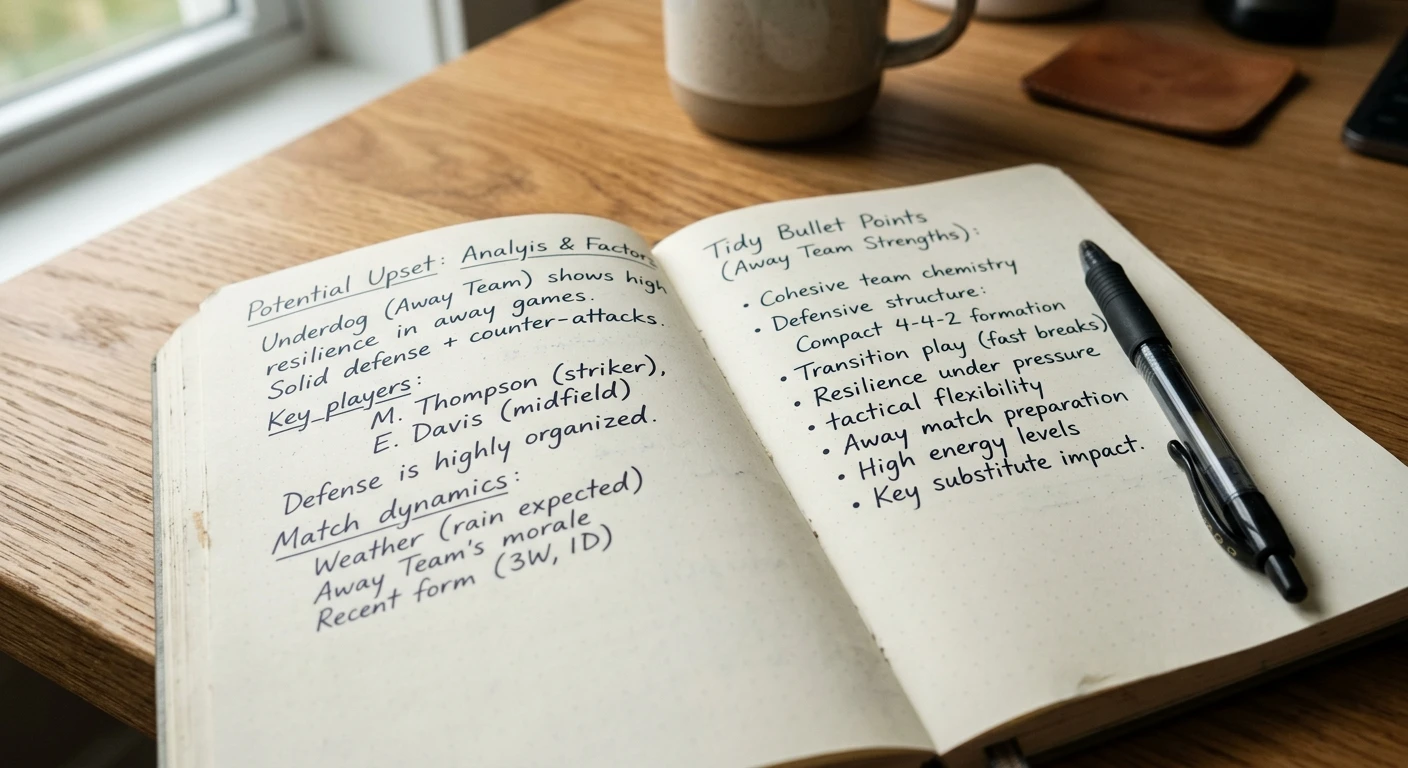 Potential Upset: Analyis & Factors
Underdog (Away Team) shows high
resilience in away games.
Solid defense + counter-attacks.
Key players:
M. Thompson (striker),
E. Davis (midfield)
Defense is highly organized.
Match dynamics:
Weather (rain expected)
Away Team's morale
Recent form (3W, 1D)
Tidy Bullet Points
(Away Team Strengths):
• Cohesive team chemistry
• Defensive structure:
Compact 4-4-2 formation
• Transition play (fast breaks)
• Resilience under pressure
• tactical flexibility
• Away match preparation
• High energy levels
• Key substitute impact.